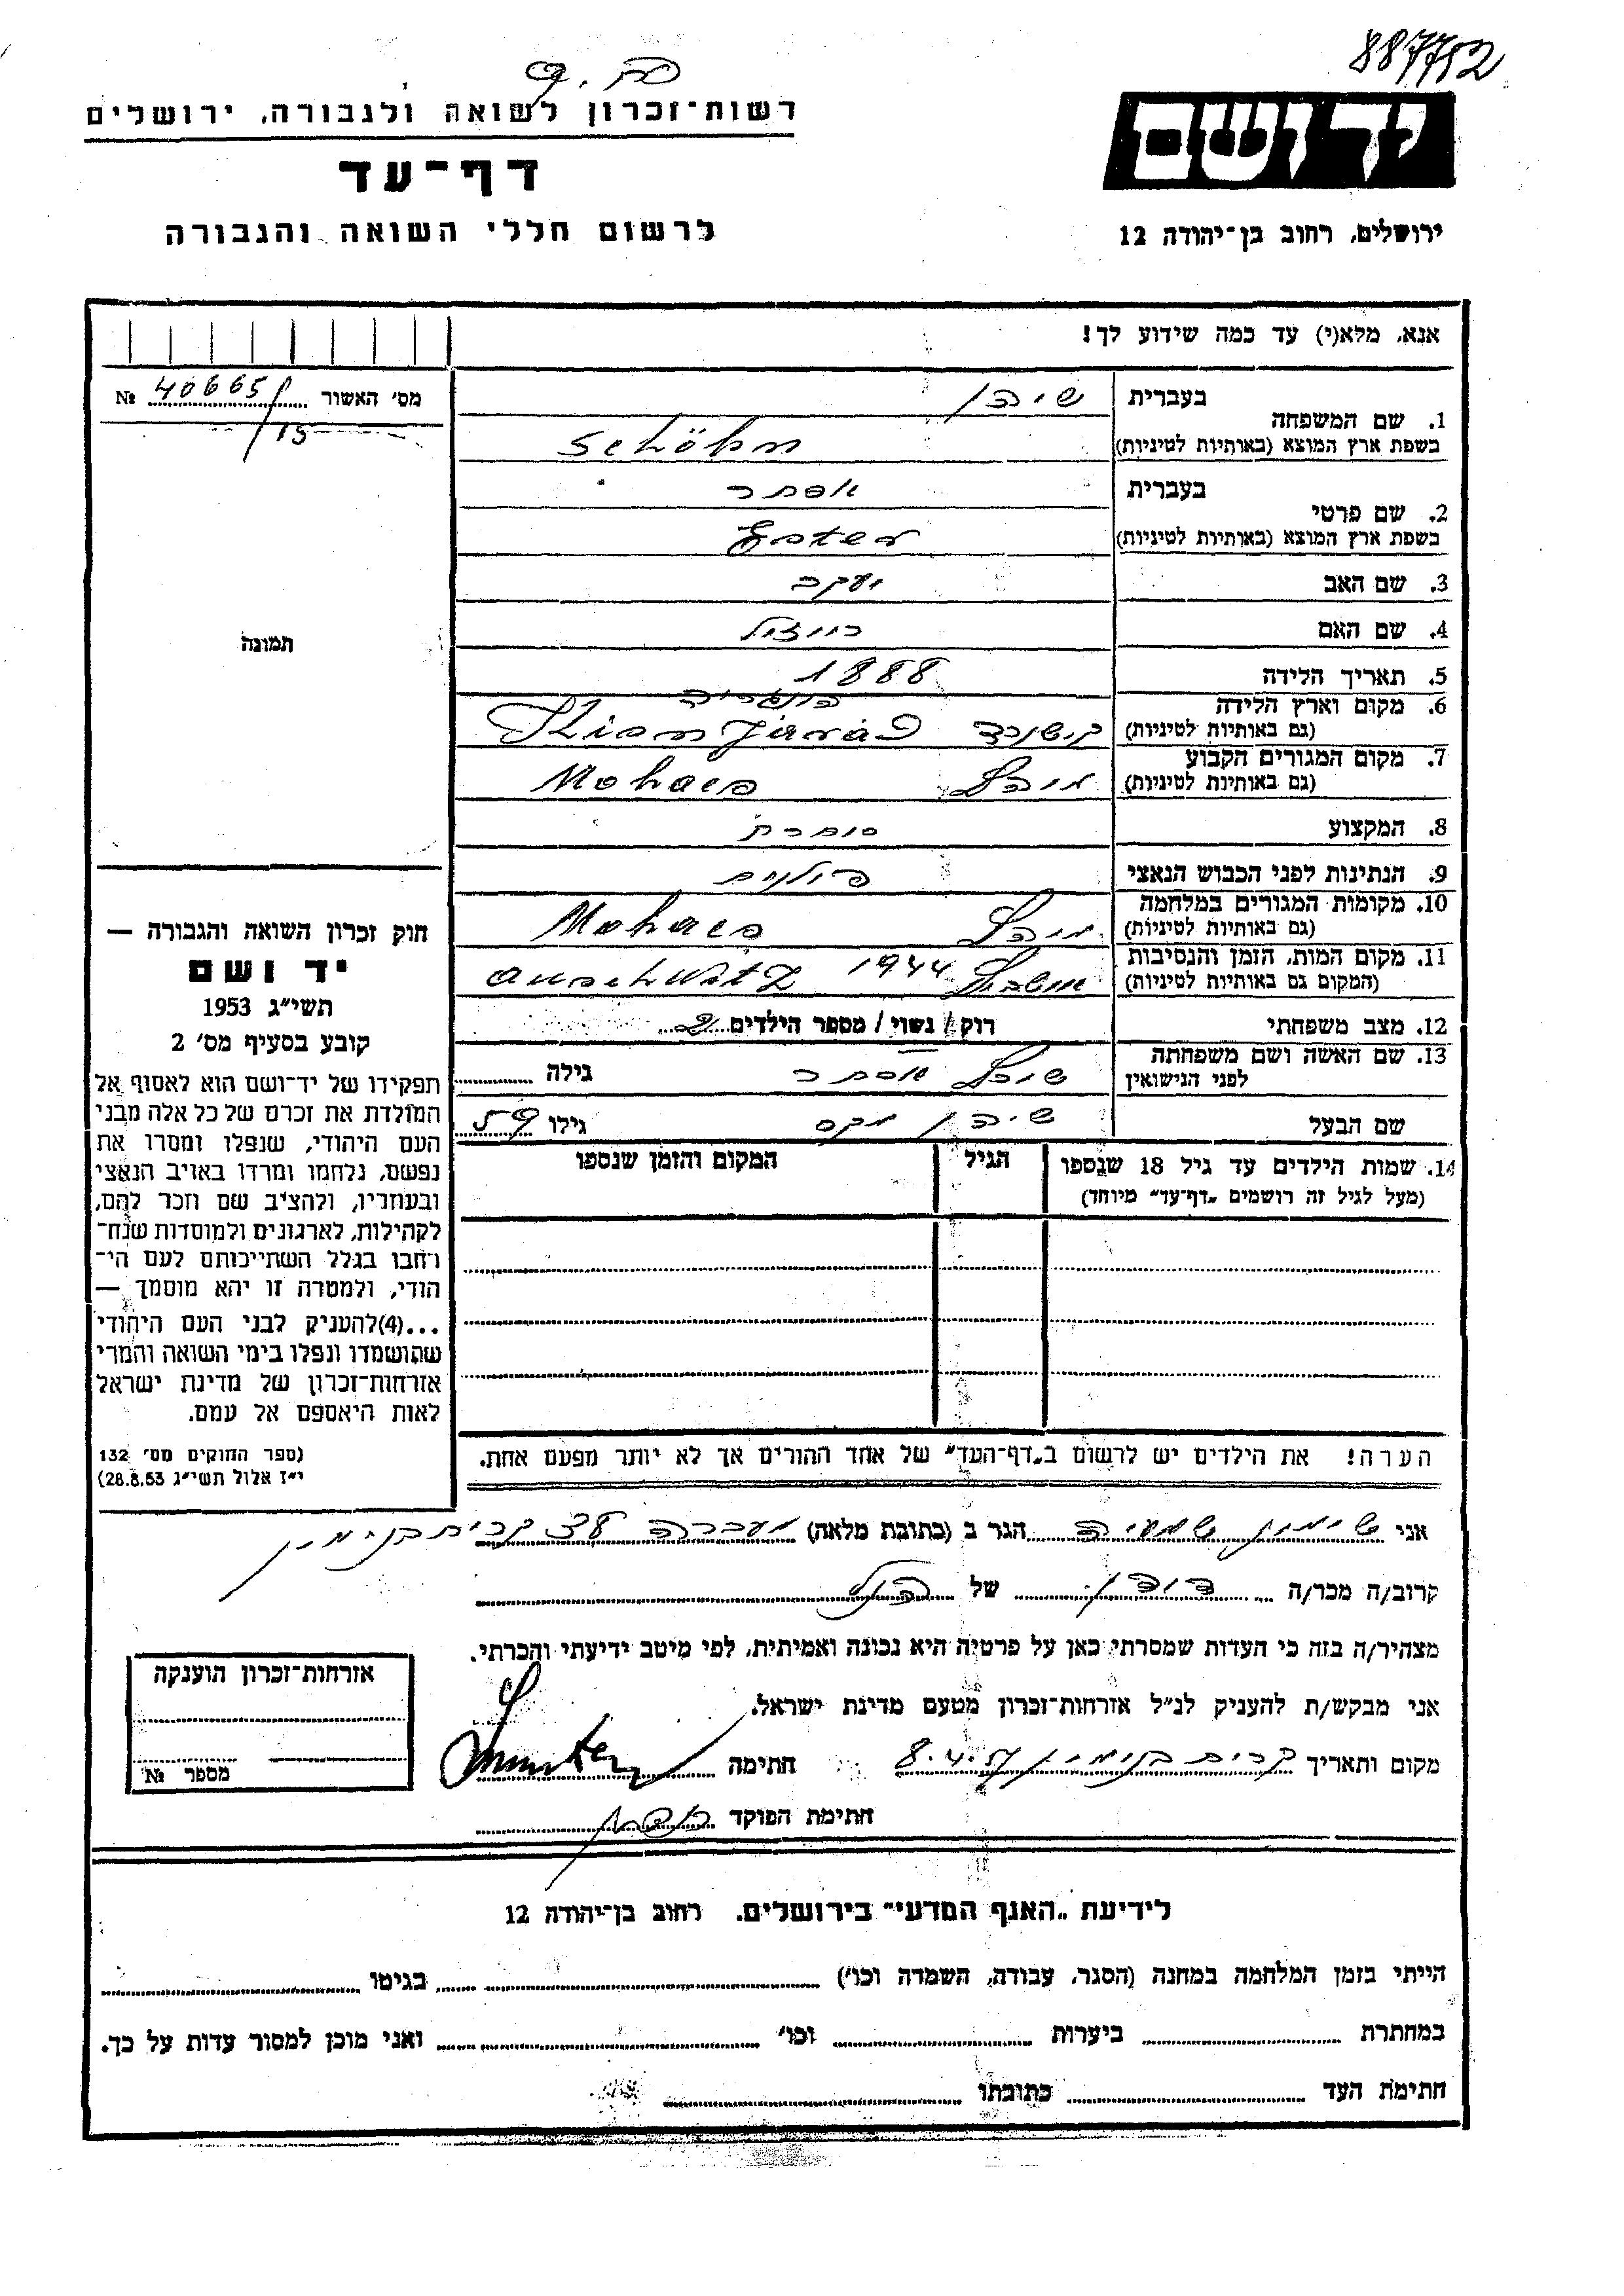 887752
רשות-זכרון לשואה ולגבורה, ירושלים
דף-עד
לרשום חללי השואה והגבורה
ידושם
ירושלים, רחוב בן-יהודה 12
אנא, מלא(י) עד כמה שידוע לך!
מס' האשור № 406651
15
תמונה
בעברית
1. שם המשפחה
בשפת ארץ המוצא (באותיות לטיניות) Schöhn
בעברית אסתר
2. שם פרטי
בשפת ארץ המוצא (באותיות לטיניות) Ester
3. שם האב יעקב
4. שם האם
5. תאריך הלידה 1888
6. מקום וארץ הלידה הונגריה
(גם באותיות לטיניות)
7. מקום המגורים הקבוע
(גם באותיות לטיניות) Mohacs
8. המקצוע סוחרת
9. הנתינות לפני הכבוש הנאצי
10. מקומות המגורים במלחמה
(גם באותיות לטיניות) Mohacs
11. מקום המות, הזמן והנסיבות
(המקום גם באותיות לטיניות) 1944 Auschwitz
12. מצב משפחתי רוק / נשוי / מספר הילדים 2
13. שם האשה ושם משפחתה
לפני הנישואין אסתר גילה
שם הבעל מקס גילו 59
14. שמות הילדים עד גיל 18 שנספו הגיל המקום והזמן שנספו
(מעל לגיל זה רושמים „דף-עד" מיוחד)
הערה! את הילדים יש לרשום ב„דף-העד" של אחד ההורים אך לא יותר מפעם אחת.
חוק זכרון השואה והגבורה —
יד ושם
תשי"ג 1953
קובע בסעיף מס' 2
תפקידו של יד-ושם הוא לאסוף אל
המולדת את זכרם של כל אלה מבני
העם היהודי, שנפלו ומסרו את
נפשם, נלחמו ומרדו באויב הנאצי
ובעוזריו, ולהציב שם וזכר להם,
לקהילות, לארגונים ולמוסדות שנח-
רחבו בגלל השתייכותם לעם הי-
הודי, ולמטרה זו יהא מוסמך —
...(4)להעניק לבני העם היהודי
שהושמדו ונפלו בימי השואה והמרי
אזרחות-זכרון של מדינת ישראל
לאות היאספם אל עמם.
(ספר החוקים מס' 132
י"ז אלול תשי"ג 28.8.53)
אני שמעון הגר ב (כתובת מלאה) מעברה קרית בנימין
קרוב/ה מכר/ה של הנ"ל
מצהיר/ה בזה כי העדות שמסרתי כאן על פרטיה היא נכונה ואמיתית, לפי מיטב ידיעתי והכרתי.
אני מבקש/ת להעניק לנ"ל אזרחות-זכרון מטעם מדינת ישראל.
מקום ותאריך קרית בנימין 8.4.57 חתימה
חתימת הפוקד
אזרחות-זכרון הוענקה
מספר №
לידיעת „האגף המדעי" בירושלים, רחוב בן-יהודה 12
הייתי בזמן המלחמה במחנה (הסגר, עבודה, השמדה וכו') בגיטו
במחתרת ביערות וכו' ואני מוכן למסור עדות על כך.
חתימת העד כתובתו